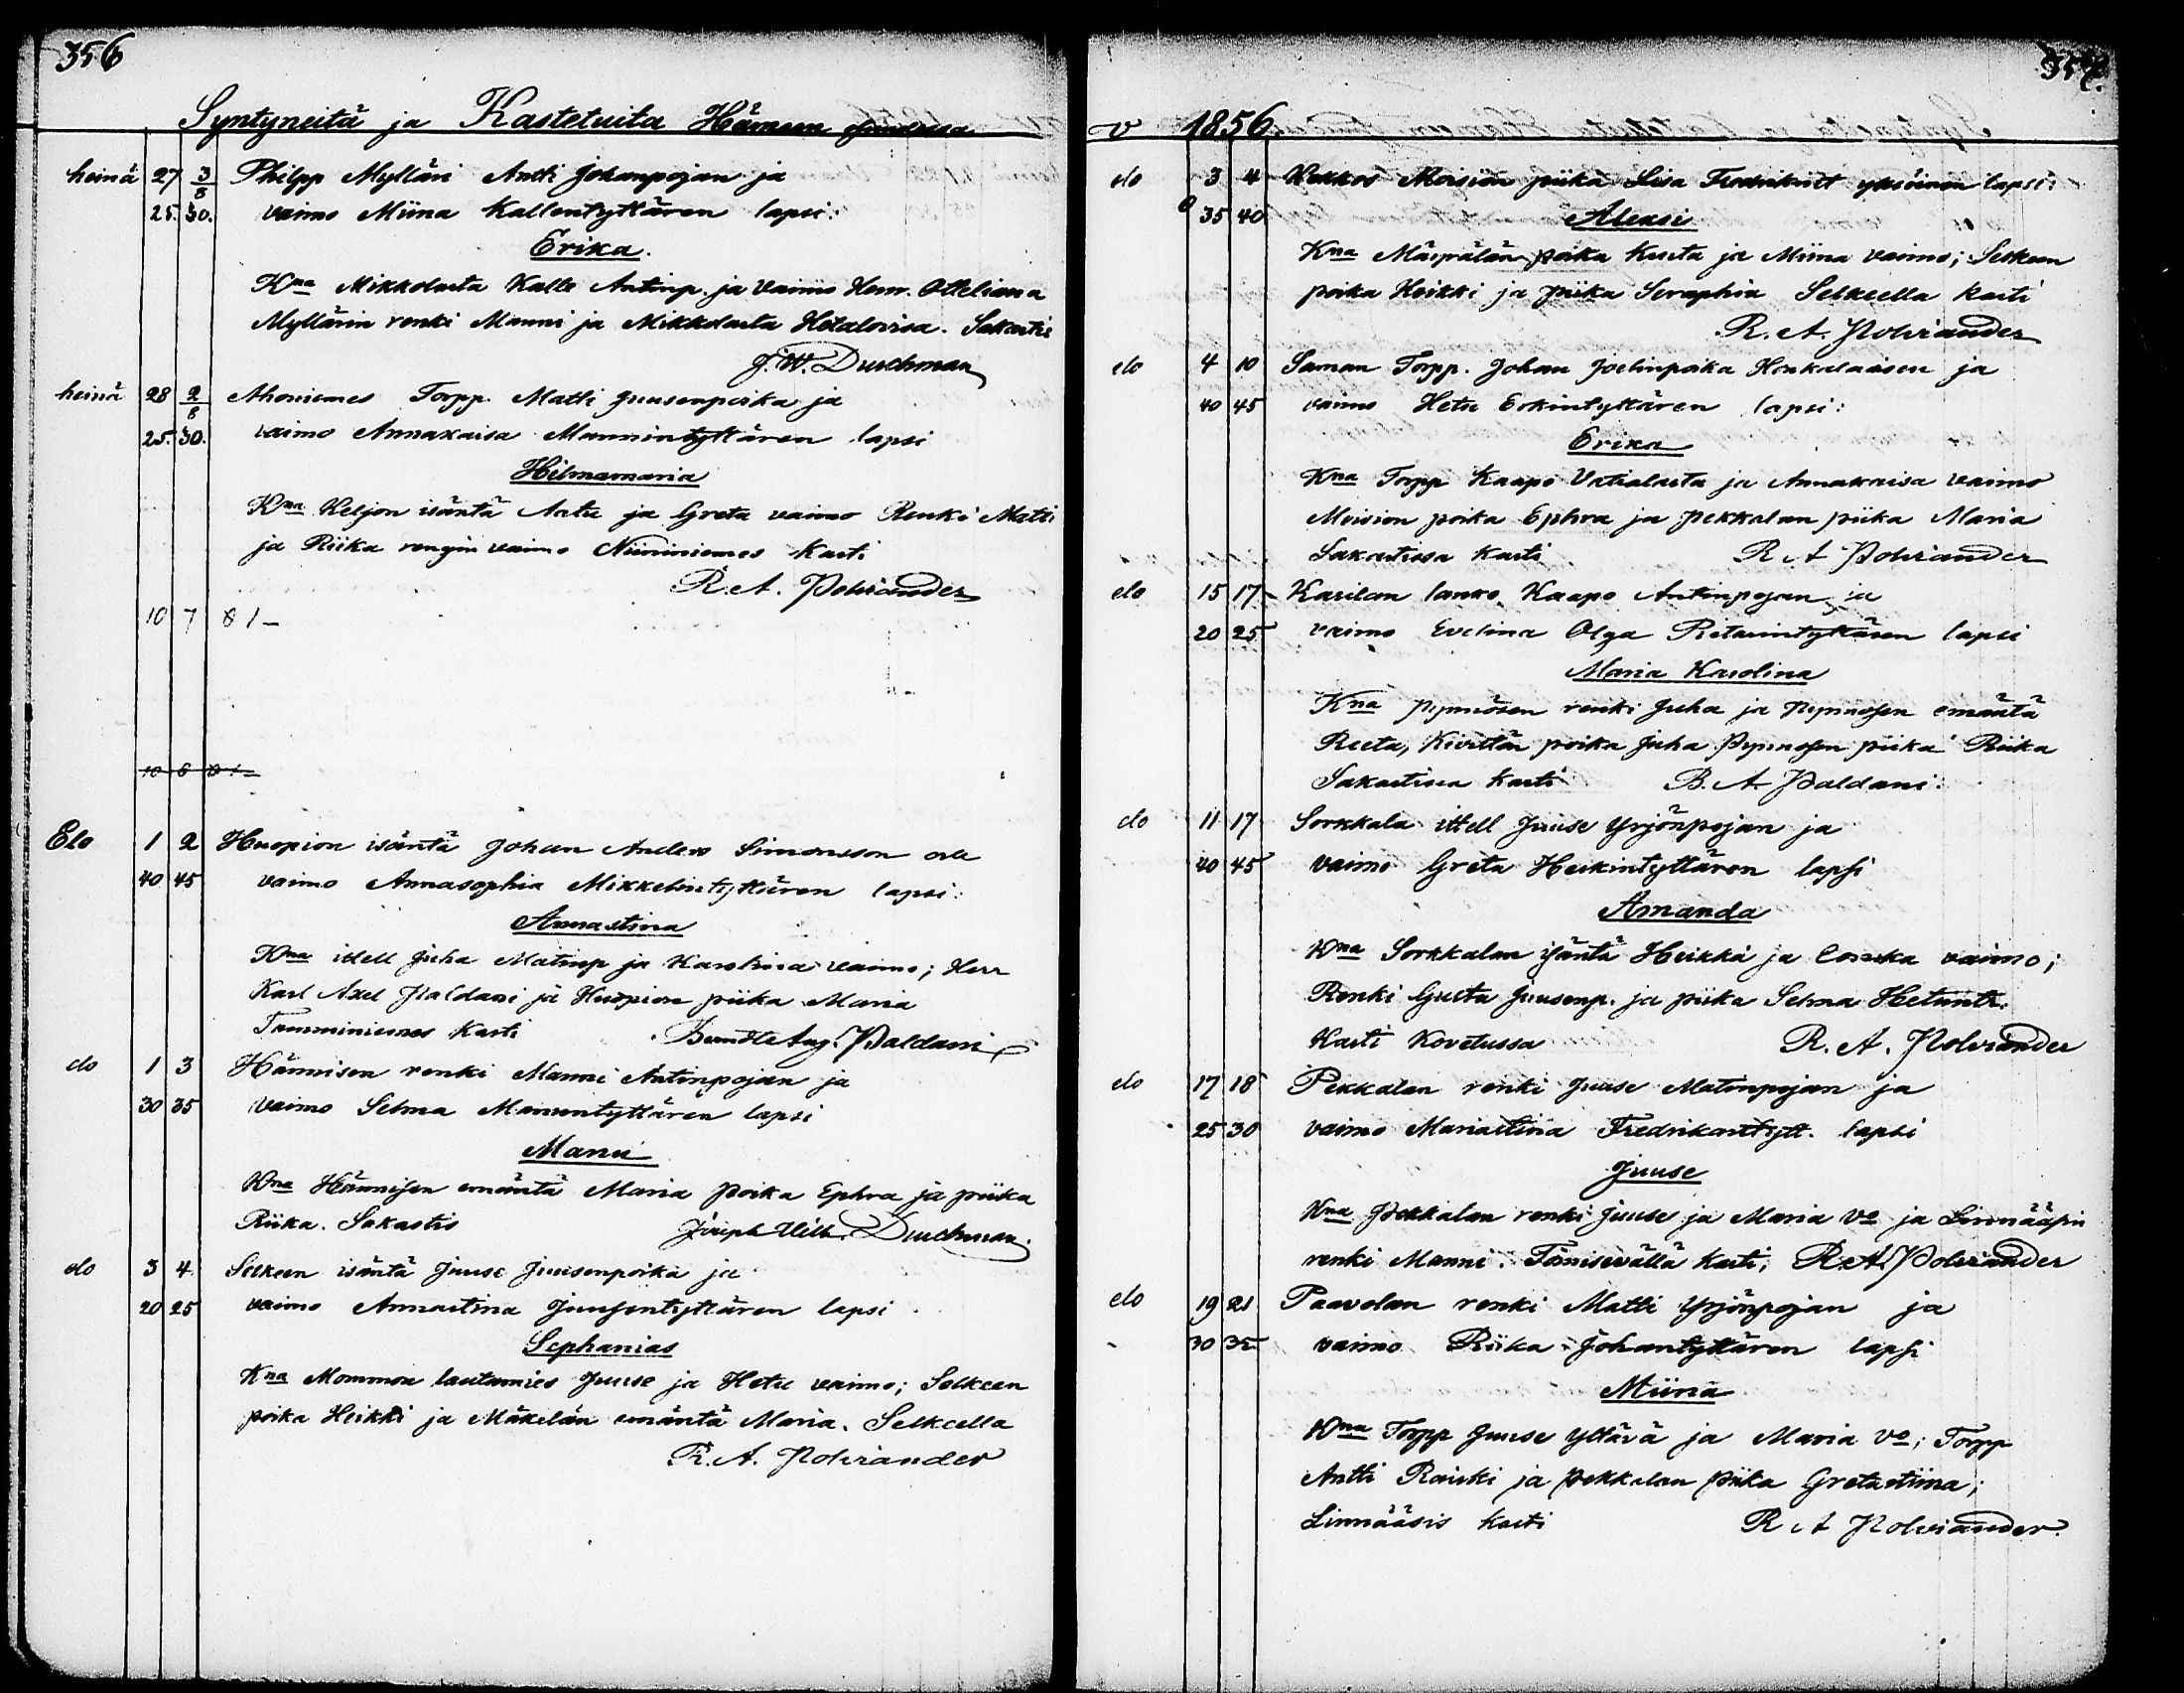 356
Syntyneitä ja Kastetuita
heinä 27 3/8 Philpp Mylläri Antti Johanpojan ja
25. 30. vaimo Miina Kallentyttären lapsi:
Erika.
Kna Mikkolasta Kalle Antinp. ja Vaimo Henr. Otteliana
Myllärin renki Manni ja Mikkolasta Hetalovisa.
J. W. Durchman
heinä 28 2/8 Ahoniemes Torpp. Matti Juusenpoika ja
25. 30. vaimo Annakaisa Mannintyttären lapsi
Hilmamaria
Kna Keljon isäntä Antu ja Greta vaimo Renki Matti
ja Riika rengin vaimo Niininiemes Kasti
R. A. Polviander
10 7 8 1 –
10 8 8 1 –
Elo 1 2 Huopion isäntä Johan Anders Simonsson
40 45 vaimo Annasophia Mikkelintyttären lapsi:
Annastina
Kna itell Juha Matinp ja Karolina vaimo; Herr
Karl Axel Paldani ja Huopion piika Maria
Tamminiemes Kasti Berndt Aug. Paldani
elo 1 3 Hännisen renki Manni Antinpojan ja
30 35 vaimo Selma Manuntyttären lapsi
Manu
Kna Hännisen emäntä Maria poika Ephra ja piika
Riika. Sakastis Joseph Wilh. Durchman.
elo 3 4 Selkeen isäntä Juuse Juusenpoika ja
20 25 vaimo Annastina Juusentyttären lapsi
Sephanias
Kna Mommon lautamies Juuse ja Hetu vaimo; Selkeen
poika Heikki ja Mäkelän emäntä Maria. Selkeella
R. A. Polviander
357.
v 1856.
elo 3 4 Kekkos Moision piika Lisa yksöinen lapsi:
35 40 Aleksi
Kna poika Kusta ja Miina vaimo; Selkeen
poika Heikki ja piika Seraphia Selkeella kasti
R. A. Polviander
elo 4 10 Saman Torpp. Johan Joelinpoika Honkalaisen ja
40 45 vaimo Hetu Erkintyttären lapsi:
Erika
Kna Torpp Kaapo Vatialasta ja Annakaisa vaimo
Moision poika Ephra ja Pekkalan piika Maria
Sakastissa kasti R A Polviander
elo 15 17 Karilan lanko Kaapo Antinpojan ja
20 25 vaimo Evelina Olga Retarintyttären lapsi
Maria Karolina
Kna Pynnösen renki Juha ja Pynnösen emäntä
Reeta, poika Juha Pynnösen piika Riika
Sakastissa kasti B. A. Paldani:
elo 11 17 Sorkkala itell Juuse Yrjönpojan ja
40 45 vaimo Greta Heikintyttären lapsi
Amanda
Kna Sorkkalan isäntä Heikki ja vaimo;
Renki Gusta Juusenp. ja piika Selma
Kasti Kovetussa R. A. Polviander
elo 17 18 Pekkalan renki Juuse Matinpojan ja
25 30 vaimo Mariastina Fredrikantytt. lapsi
Juuse
Kna Pekkalan renki Juuse ja Maria vo ja Linnääsin
renki Manni. Törnisevällä kasti, R. A. Polviander
elo 19 21 Paavolan renki Matti Yrjönpojan ja
30 35 vaimo Riika Johantyttären lapsi
Miina
Kna Torpp Juuse Yttävä ja Maria vo; Torpp
Antti Raiski ja Pekkalan piika Gretastiina;
Linnääsis kasti R A Polviander.